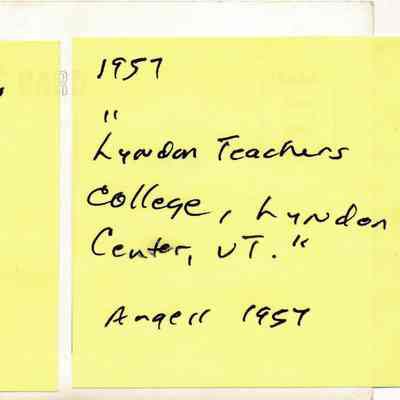 1957
"
Lyndon Teachers
College, Lyndon
Center, VT."
Angell 1957